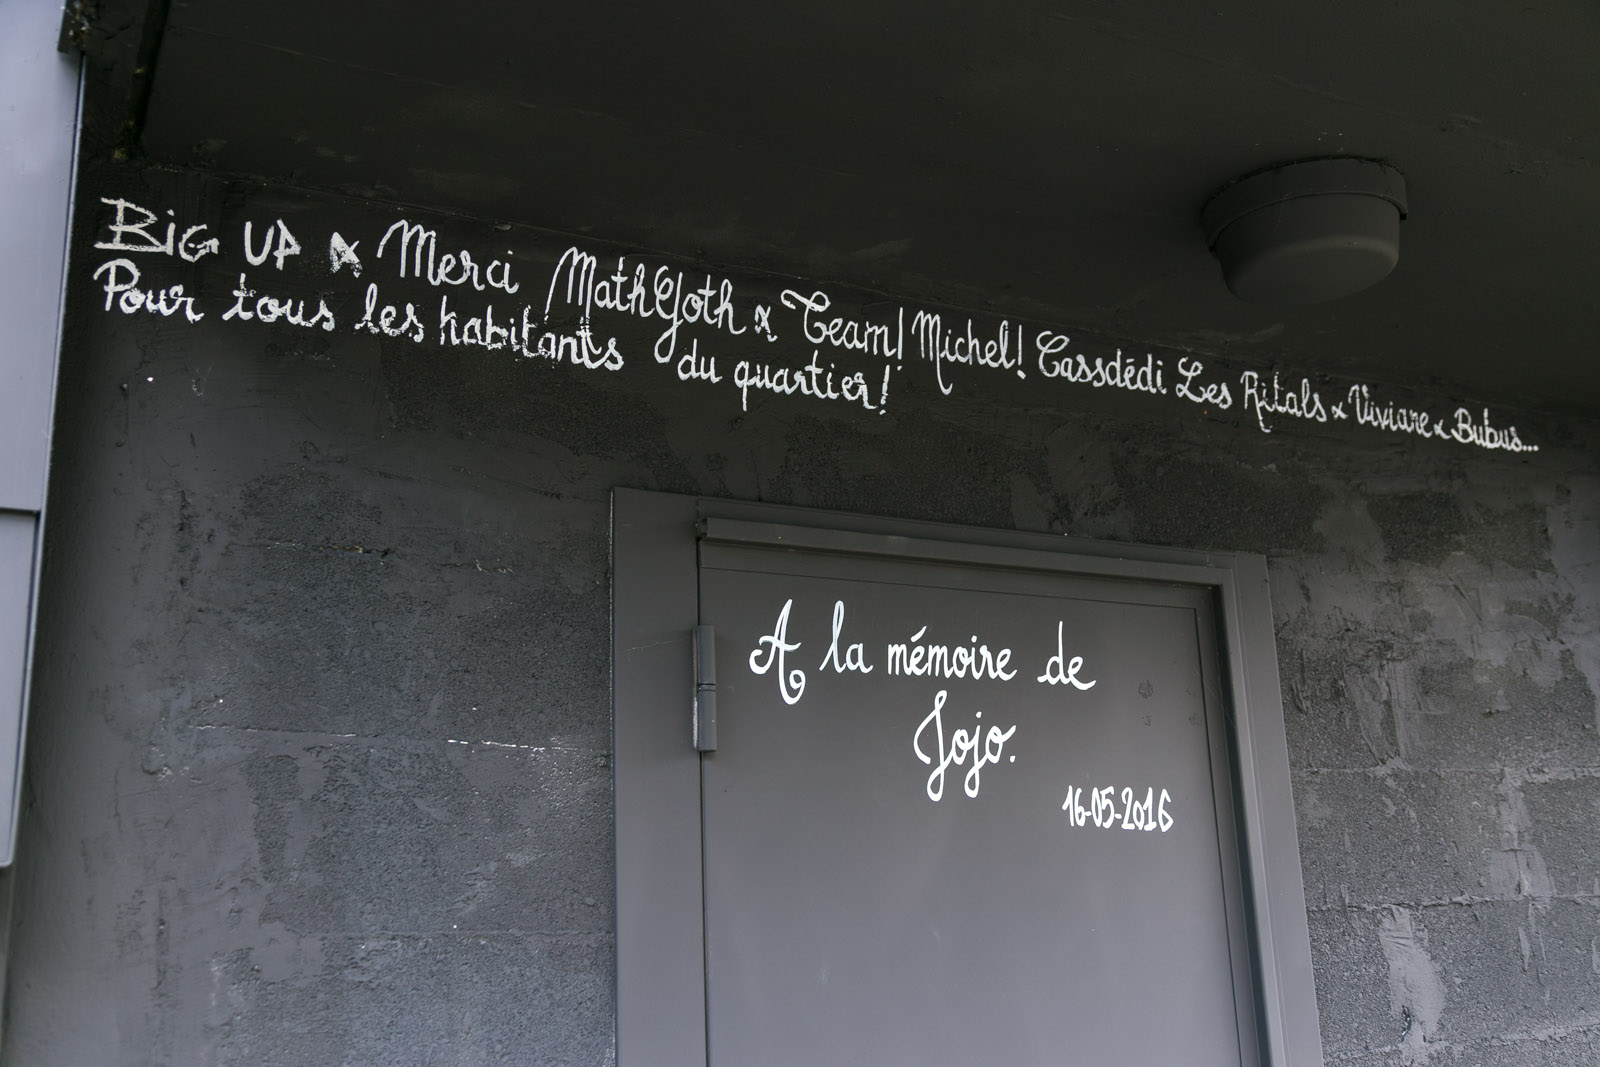 BIG UP & Merci MathGoth & Team! Michel! Cassdédi Les Ritals & Viviane & Bubus...
Pour tous les habitants du quartier!
A la mémoire de
Jojo.
16-05-2016